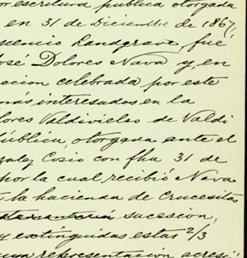 or escritura pública otorgada
en 31 de Diciembre de 1867,
Landgrave, fué
José Dolores Nava y en
celebrada por este
más interesados en la
lores Valdivielso de Valdi
ública, otorgada ante el
zalez Cosio con fha 31 de
por la cual recibió Nava
la hacienda de Crucesitas
sucesion,
y extinguidas estas 2/3
una representacion